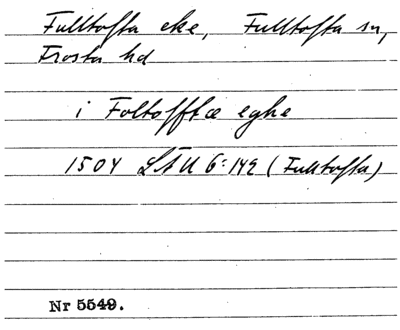 Fulltofta eke, Fulltofta sn,
Frosta hd
i Foltofftæ eghe
1504 LÄU 6:142 (Fulltofta)
Nr 5549.